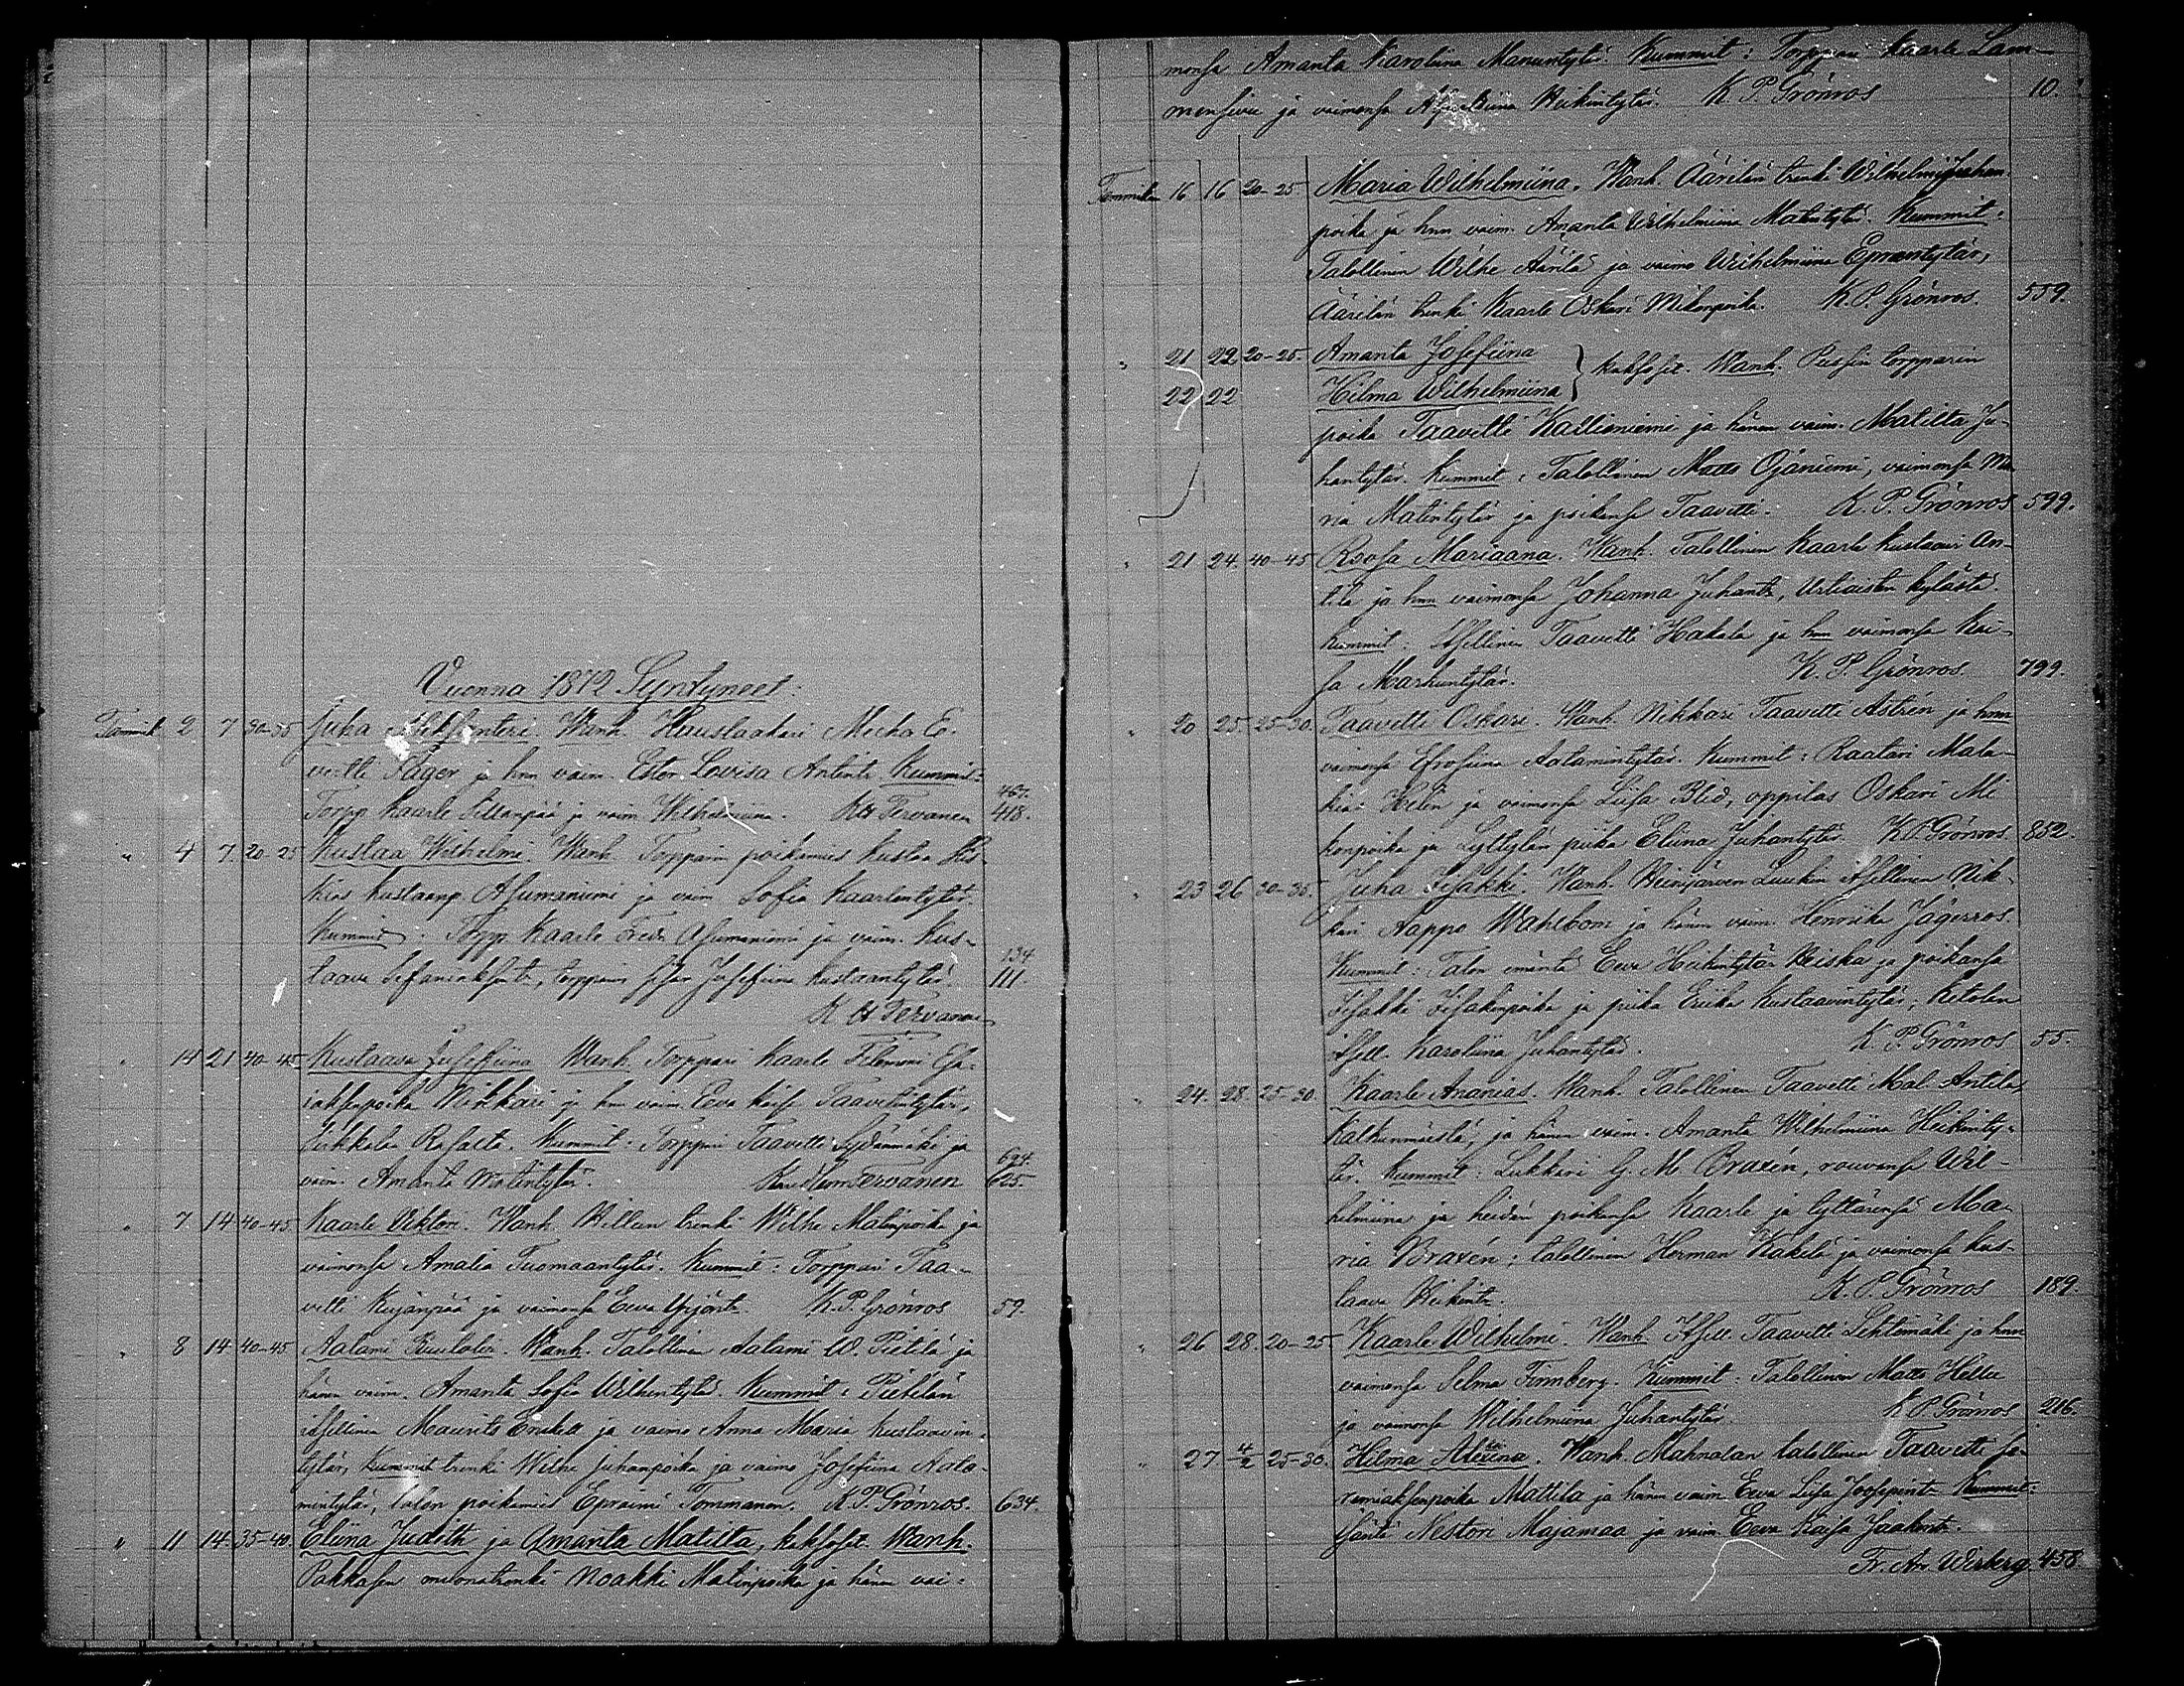 Vuonna 1872 Syntyneet:
Tammik 2 7 30-35 Juha Aleksanteri. Wanh. Hauslaakari Micko Ee-
vertti Päger ja hnn vaim. Ester Lowisa Antintr Kummit:
467.
Torpp Kaarle Sillanpää ja vaim Wilhelmiina. Tervanen 418.
" 4 7 20-25 Kustaa Wilhelmi. Wanh. Torpparin poikamies Kustaa Hes-
kias Kustaanp. Asumaniemi ja vaim Sofia Kaarlentytär.
Kummit. Torpp. Kaarle Fredr. Asumaniemi ja vaim. Kus-
134
taava Stefaninksentr, torpparin sisar Josefiina Kustaantytär. 111.
K H Tervanen
" 14 21 40-45 Kustaava Josefiina Wanh. Torppari Kaarle Filemoni Esa-
iaksenpoika Nikkari ja hnn vaim. Eeva Kaisa Taavetintytär,
Kummit: Torppari Taavetti Sydänmäki ja
624.
vaim. Amanta Matintytär. Tervanen 625.
" 7 14 40-45 Kaarle Viktori. Wanh. Hellun trenki Wilhe Matinpoika ja
vaimonsa Amalia Tuomaantytär. Kummit: Torppari Taa-
vetti Kujanpää ja vaimonsa Eeva Yrjöntr. K. P. Grönros 59.
" 8 14 40-45 Aatami Ruutolin. Wanh. Talollinen Aatami W. Pietilä ja
hänen vaim. Amanta Sofia Wilhentytär. Kummit: Pietilän
itsellinen Maurits Enskog ja vaimo Anna Maria Kustaavin-
tytär, Kummit trenki Wilhe Juhanpoika ja vaimo Josefiina Aata-
mintytär, talon poikamies Epraimi Tommanen. K. P. Grönros. 634.
" 11 14 35-40 Eliina Judith ja Amanta Matilta, kaksoset. Wanh.
Pakkasen muonatrenki Noakki Matinpoika ja hänen vai-
monsa Amanta Karoliina Manuntytär. Kummit: Torppari Kaarle Lam-
mensivu ja vaimonsa Heikintytär. K. P. Grönros 10.
Tammikn 16 16 20-25 Maria Wilhelmiina. Wanh. Äärilän trenki Wilhelmi Juhan-
poika ja hnn vaim. Amanta Wilhelmiina Matintytär. Kummit:
Talollinen Wilhe Äärilä ja vaimo Wilhelmiina Epramintytär,
Äärilän trenki Kaarle Oskari Mikonpoika. K. P. Grönros. 559.
" 21 22 20-25 Amanta Josefiina
22 22 Hilma Wilhelmiina } kaksoset. Wanh. Peissin torpparin
poika Taavetti Kallioniemi ja hänen vaim. Matilta Ju-
hantytär. Kummit: Talollinen Matts Ojaniemi, vaimonsa Ma-
ria Matintytär ja poikansa Taavetti. K. P. Grönros 599.
" 21 24 40-45 Roosa Mariaana. Wanh. Talollinen Kaarle Kustaavi An-
tila ja hnn vaimonsa Johanna Juhantr, Urtiaisten kylästä.
Kummit: Itsellinen Taavetti Hakala ja hnn vaimonsa Kai-
sa Markuntytär. K. P. Grönros. 799.
" 20 25 25-30. Taavetti Oskari. Wanh. Nikkari Taavetti Astrén ja hnn
vaimonsa Efrosiina Aatamintytär. Kummit: Raatari Mala-
kias Helin ja vaimonsa Liisa Blid, oppilas Oskari Mi-
konpoika ja Lyttylän piika Eliina Juhantytär. K. P. Grönros. 852.
" 23 26 30-35. Juha Iisakki. Wanh. Heinijärven Luukin itsellinen Nik-
kari Aappo Wahlbom ja hänen vaim. Henriika Jägerros.
Kummit: Talon emäntä Eeva Heikintytär Heiska ja poikansa
Iisakki Iisakinpoika ja piika Eriika Kustaavintytär; Ketolan
itsell. Karoliina Juhantytär. K. P. Grönros 55.
" 24. 28. 25-30. Kaarle Ananias. Wanh. Talollinen Taavetti Mal. Antila,
Kalkunmäestä, ja hänen vaim. Amanta Wilhelmiina Heikinty-
tär. Kummit: Lukkari G. M. Braxén, rouvansa Wil-
helmiina ja heidän poikansa Kaarle ja tyttärensä Ma-
ria Braxén; talollinen Herman Käkelä ja vaimonsa Kus-
taava Heikintr. K. P. Grönros 189.
" 26 28. 20-25 Kaarle Wilhelmi. Wanh. Itsell. Taavetti Lehtimäki ja hnn
vaimonsa Selma Finnberg. Kummit: Talollinen Matts Hellu
ja vaimonsa Wilhelmiina Juhantytär. K. P. Grönros 216.
" 27 4/2 25-30. Hilma Aleksiina. Wanh. Mahnalan talollinen Taavetti Je-
remiaksenpoika Mattila ja hänen vaim. Eeva Liisa Joosepintr. Kummit:
isäntä Nestori Majamaa ja vaim. Eeva Kaisa Jaakontr.
Fr. Arv. Wirberg. 458